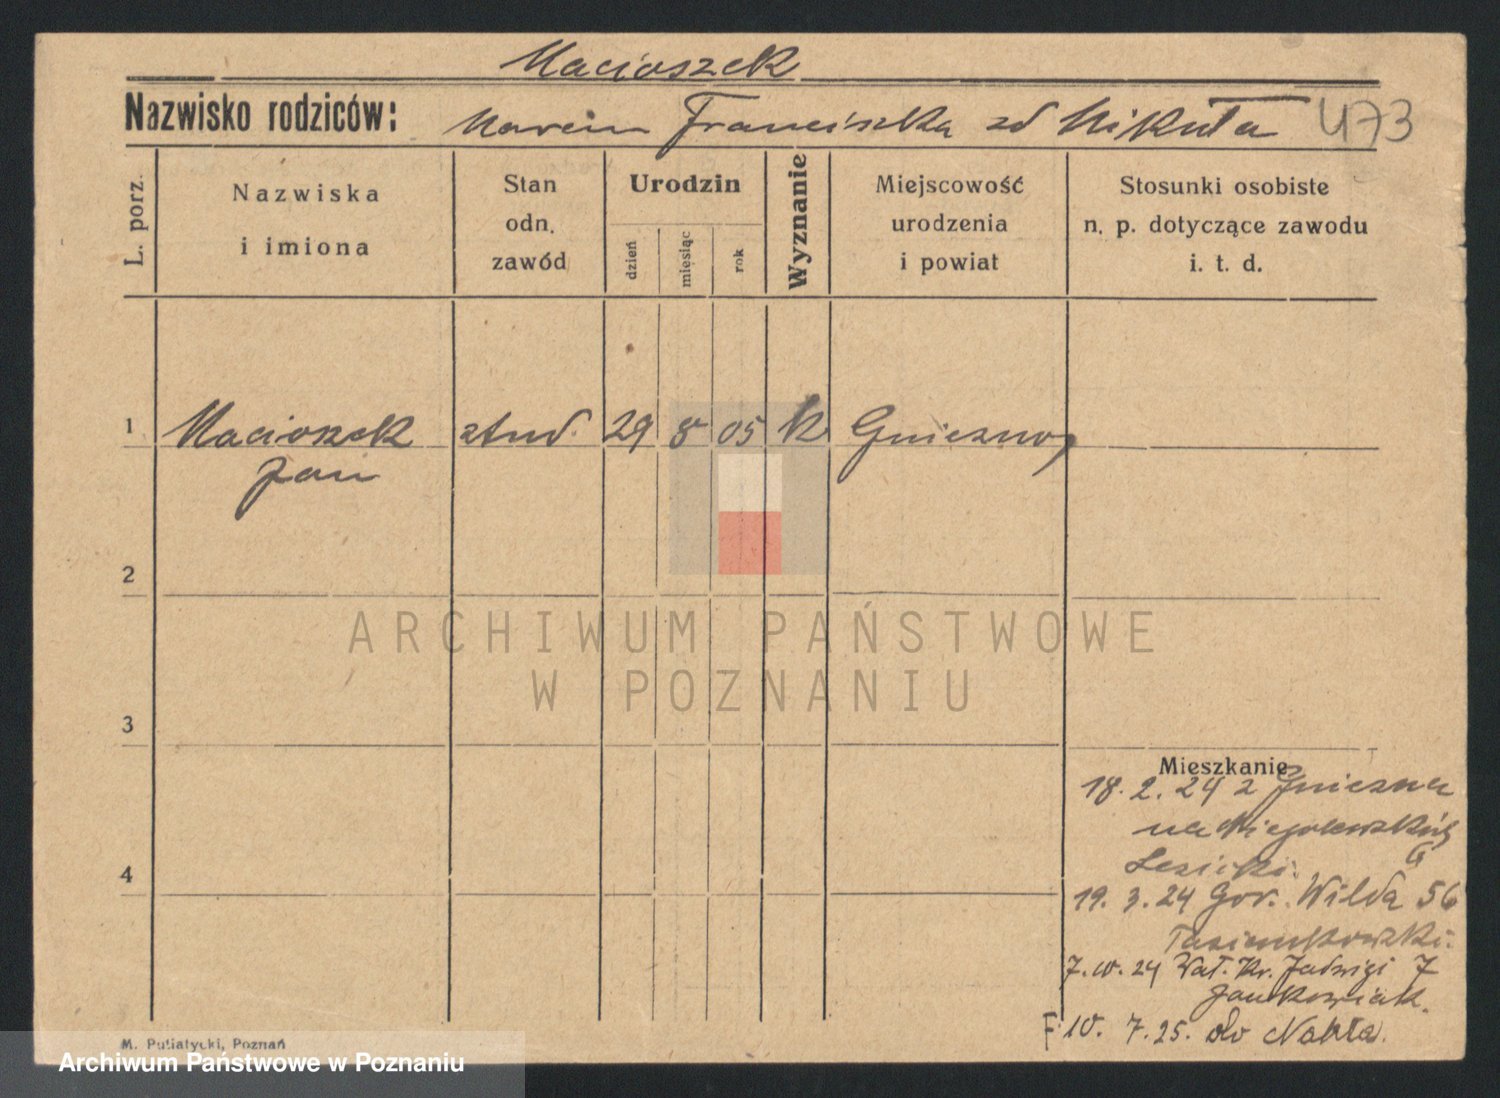 Macioszek
Nazwisko rodziców: Marcin Franciszka zd Mikuła 473
L. porz.
Nazwiska i imiona
Stan odn. zawód
Urodzin
dzień
miesiąc
rok
Wyznanie
Miejscowość urodzenia i powiat
Stosunki osobiste n. p. dotyczące zawodu i. t. d.
1 Macioszek stud. 29 8 05 k Gniezno
Jan
2
3
4
Mieszkanie
18. 2. 24 z Gniezna
na Niegolewskich
19. 3. 24 Gór. Wilda 56
7. 10. 24 Wał. Kr. Jadwigi 7
Jankowiak.
10. 7. 25. do Nakła.
M. Putiatycki, Poznań
ARCHIWUM PAŃSTWOWE
W POZNANIU
Archiwum Państwowe w Poznaniu